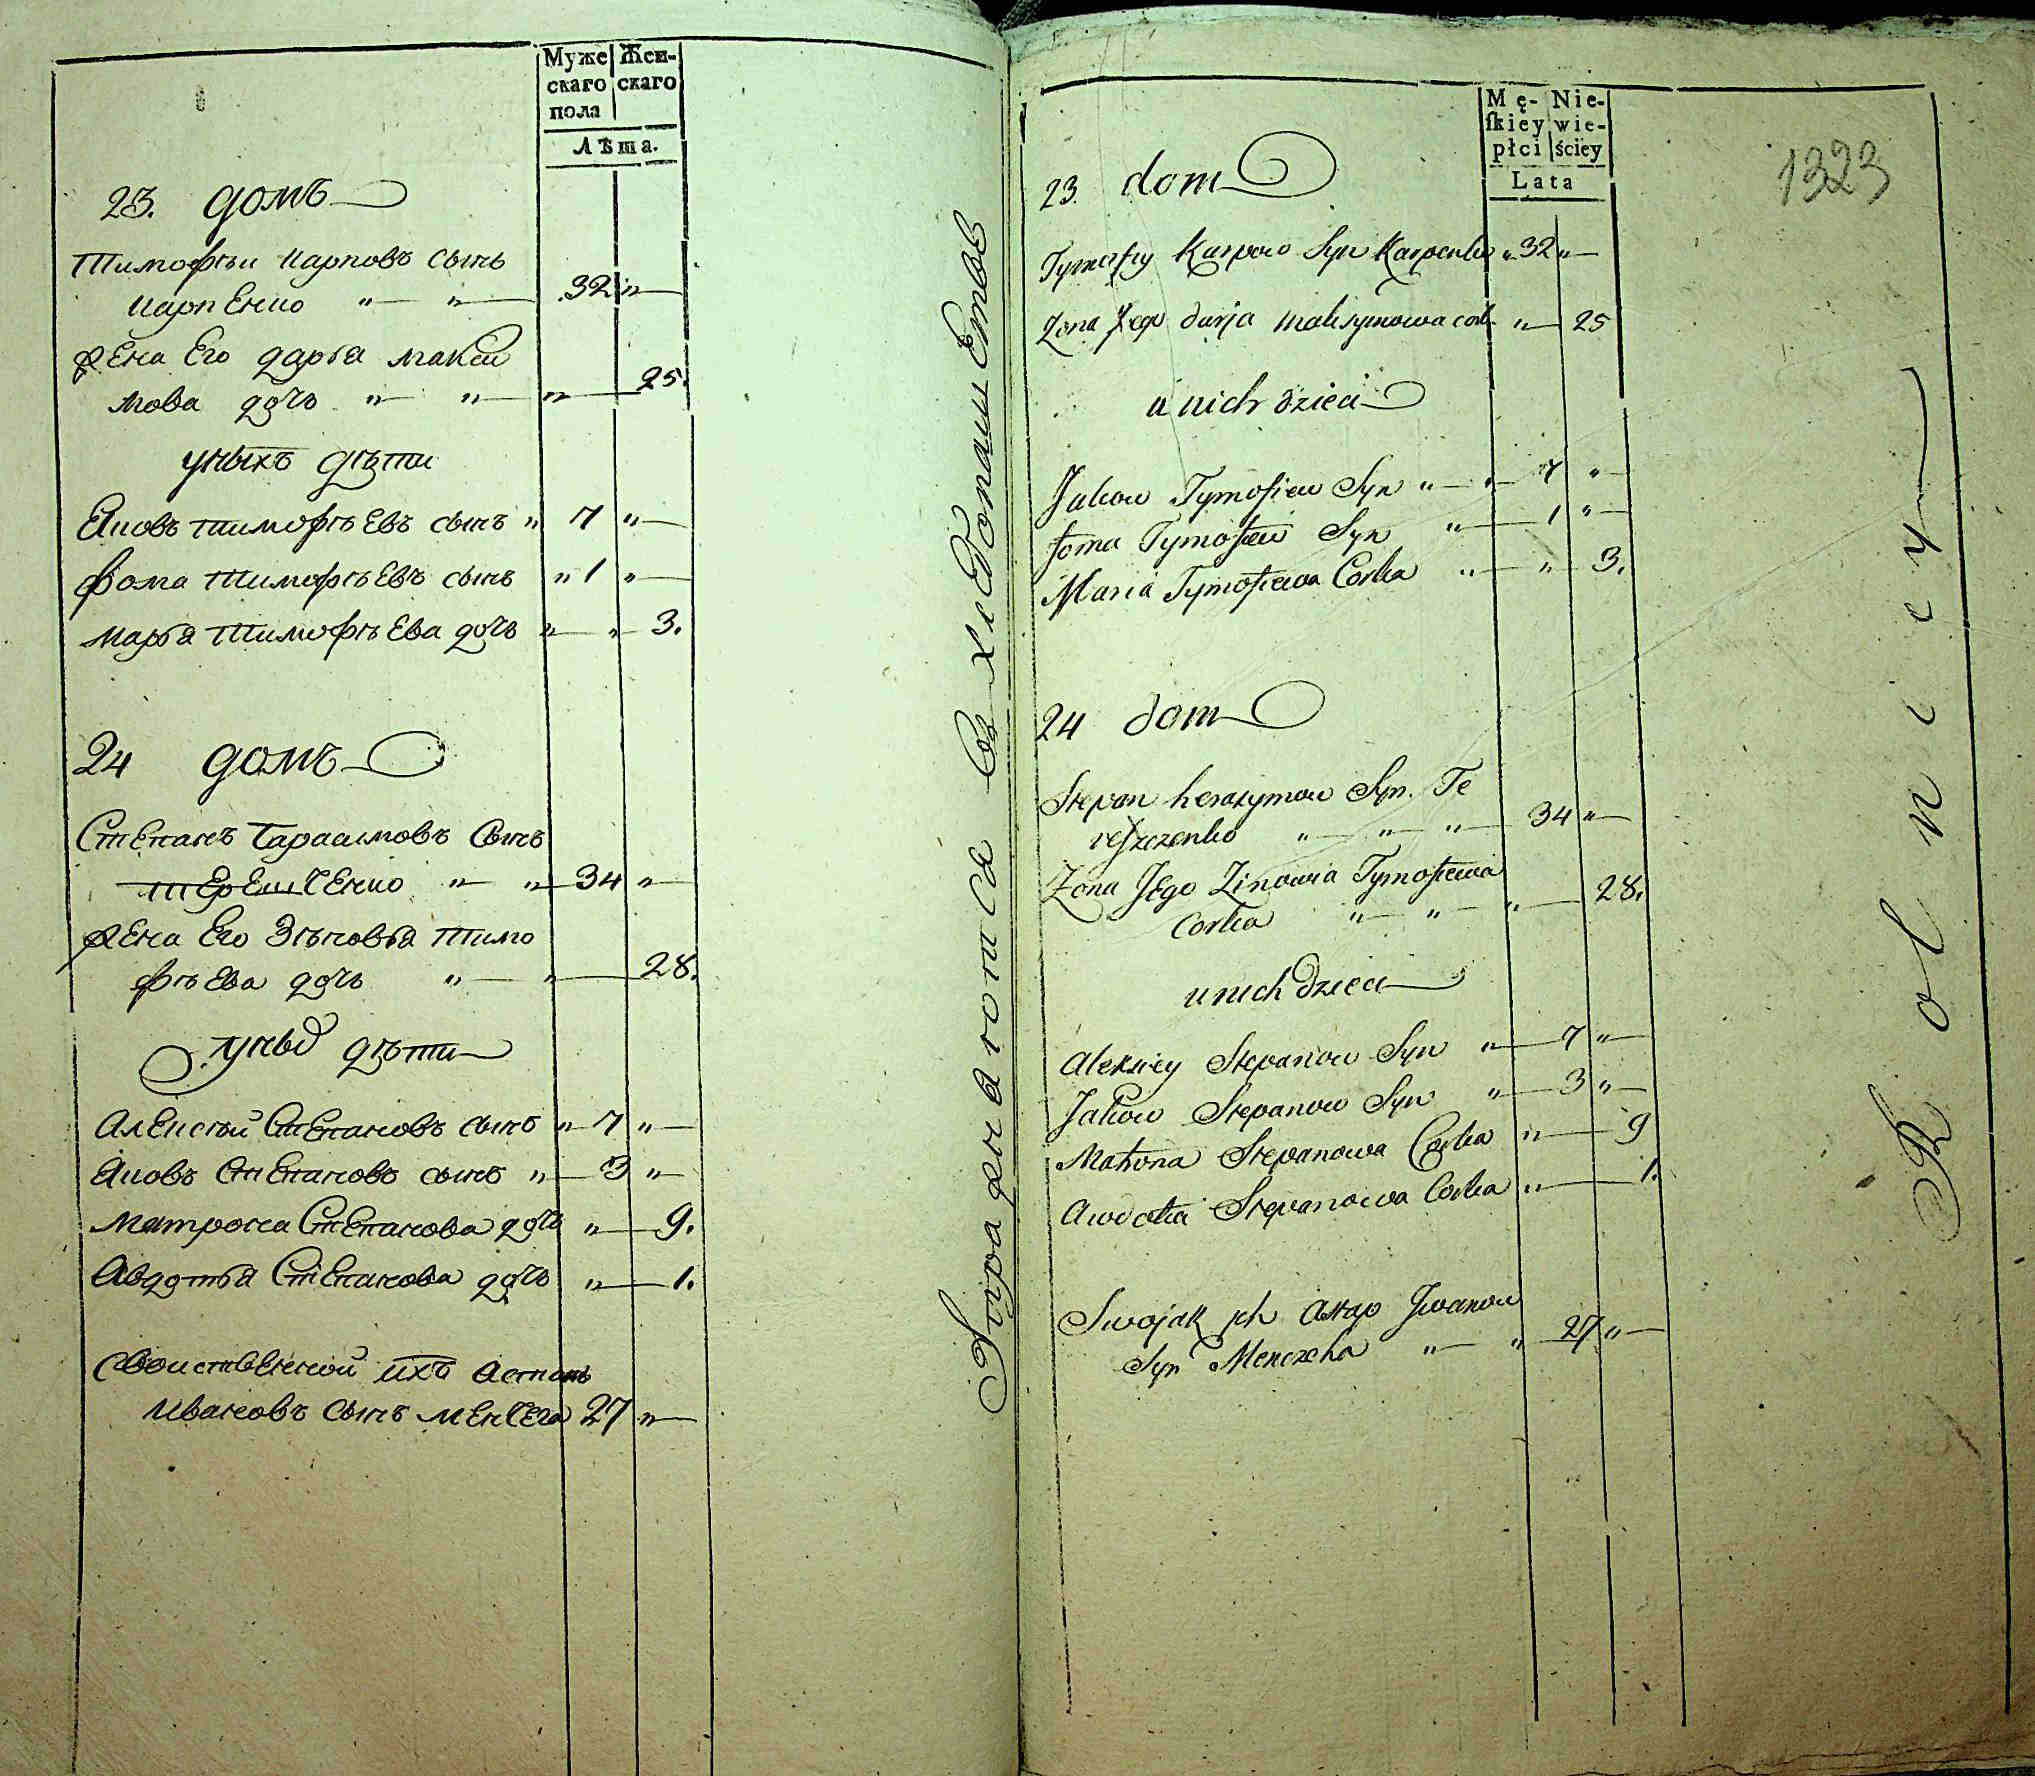 Муже Жен-
скаго скаго
пола
Лѣта.
23. домъ
Тимофѣи Карповъ сынъ
Карпенко „ „ 32 „
Жена Его дарья макси
мова дочь „ „ „ 25.
унихъ дѣти
Яковъ тимофѣевъ сынъ „ 7 „
фома тимофѣевъ сынъ „ 1 „
марья тимофѣева дочь „ „ 3.
24 домъ
Степанъ Гарасимовъ Сынъ
терешченко „ „ 34 „
Жена Его Зѣновья тимо
фѣева дочь „ „ 28.
унихъ дѣти
Алексѣй Степановъ сынъ „ 7 „
Яковъ Степановъ сынъ „ 3 „
матрона Степанова дочь „ 9.
Авдотья Степанова дочь „ 1.
Свойственной ихъ астапъ
Ивановъ сынъ менчега 27 „
въ хлебопашестве
Mę- Nie-
ſkiey wie-
płci ściey
Lata
1323
23. dom
Tymofiy Karpow Syn Karpenko „ 32 „
Zona Jego darja maksymowa cor. „ 25
u nich dzieci
Jakow Tymofiew Syn „ „ 7 „
foma Tymofiew Syn „ 1 „
Maria Tymofiewa Corka „ „ 3.
24 dom
Stepan herasymow Syn. Te
reszczenko „ „ „ 34 „
Zona JEgo Zinowia Tymofiewa
Corka „ „ „ 28.
u nich dzieci
Alexiey Stepanow Syn „ 7 „
Jakow Stepanow Syn „ 3 „
Matrona Stepanowa Corka „ 9
Awdotia Stepanowa Corka „ 1.
Swojak ich Astap Jwanow
Syn Menczeha „ „ 27 „
Rolniey